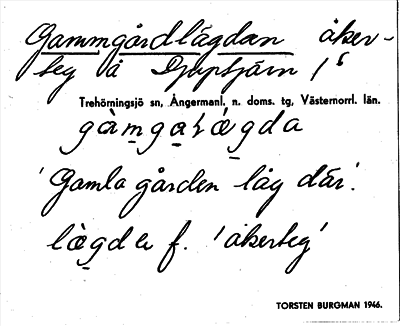 Gammgårdlägdan åker-
teg å Djupsjärn 1/6
Trehörningsjö sn, Ångermanl. n. doms. tg, Västernorrl. län.
'Gamla gården låg där'.
f. 'åkerteg'
TORSTEN BURGMAN 1946.